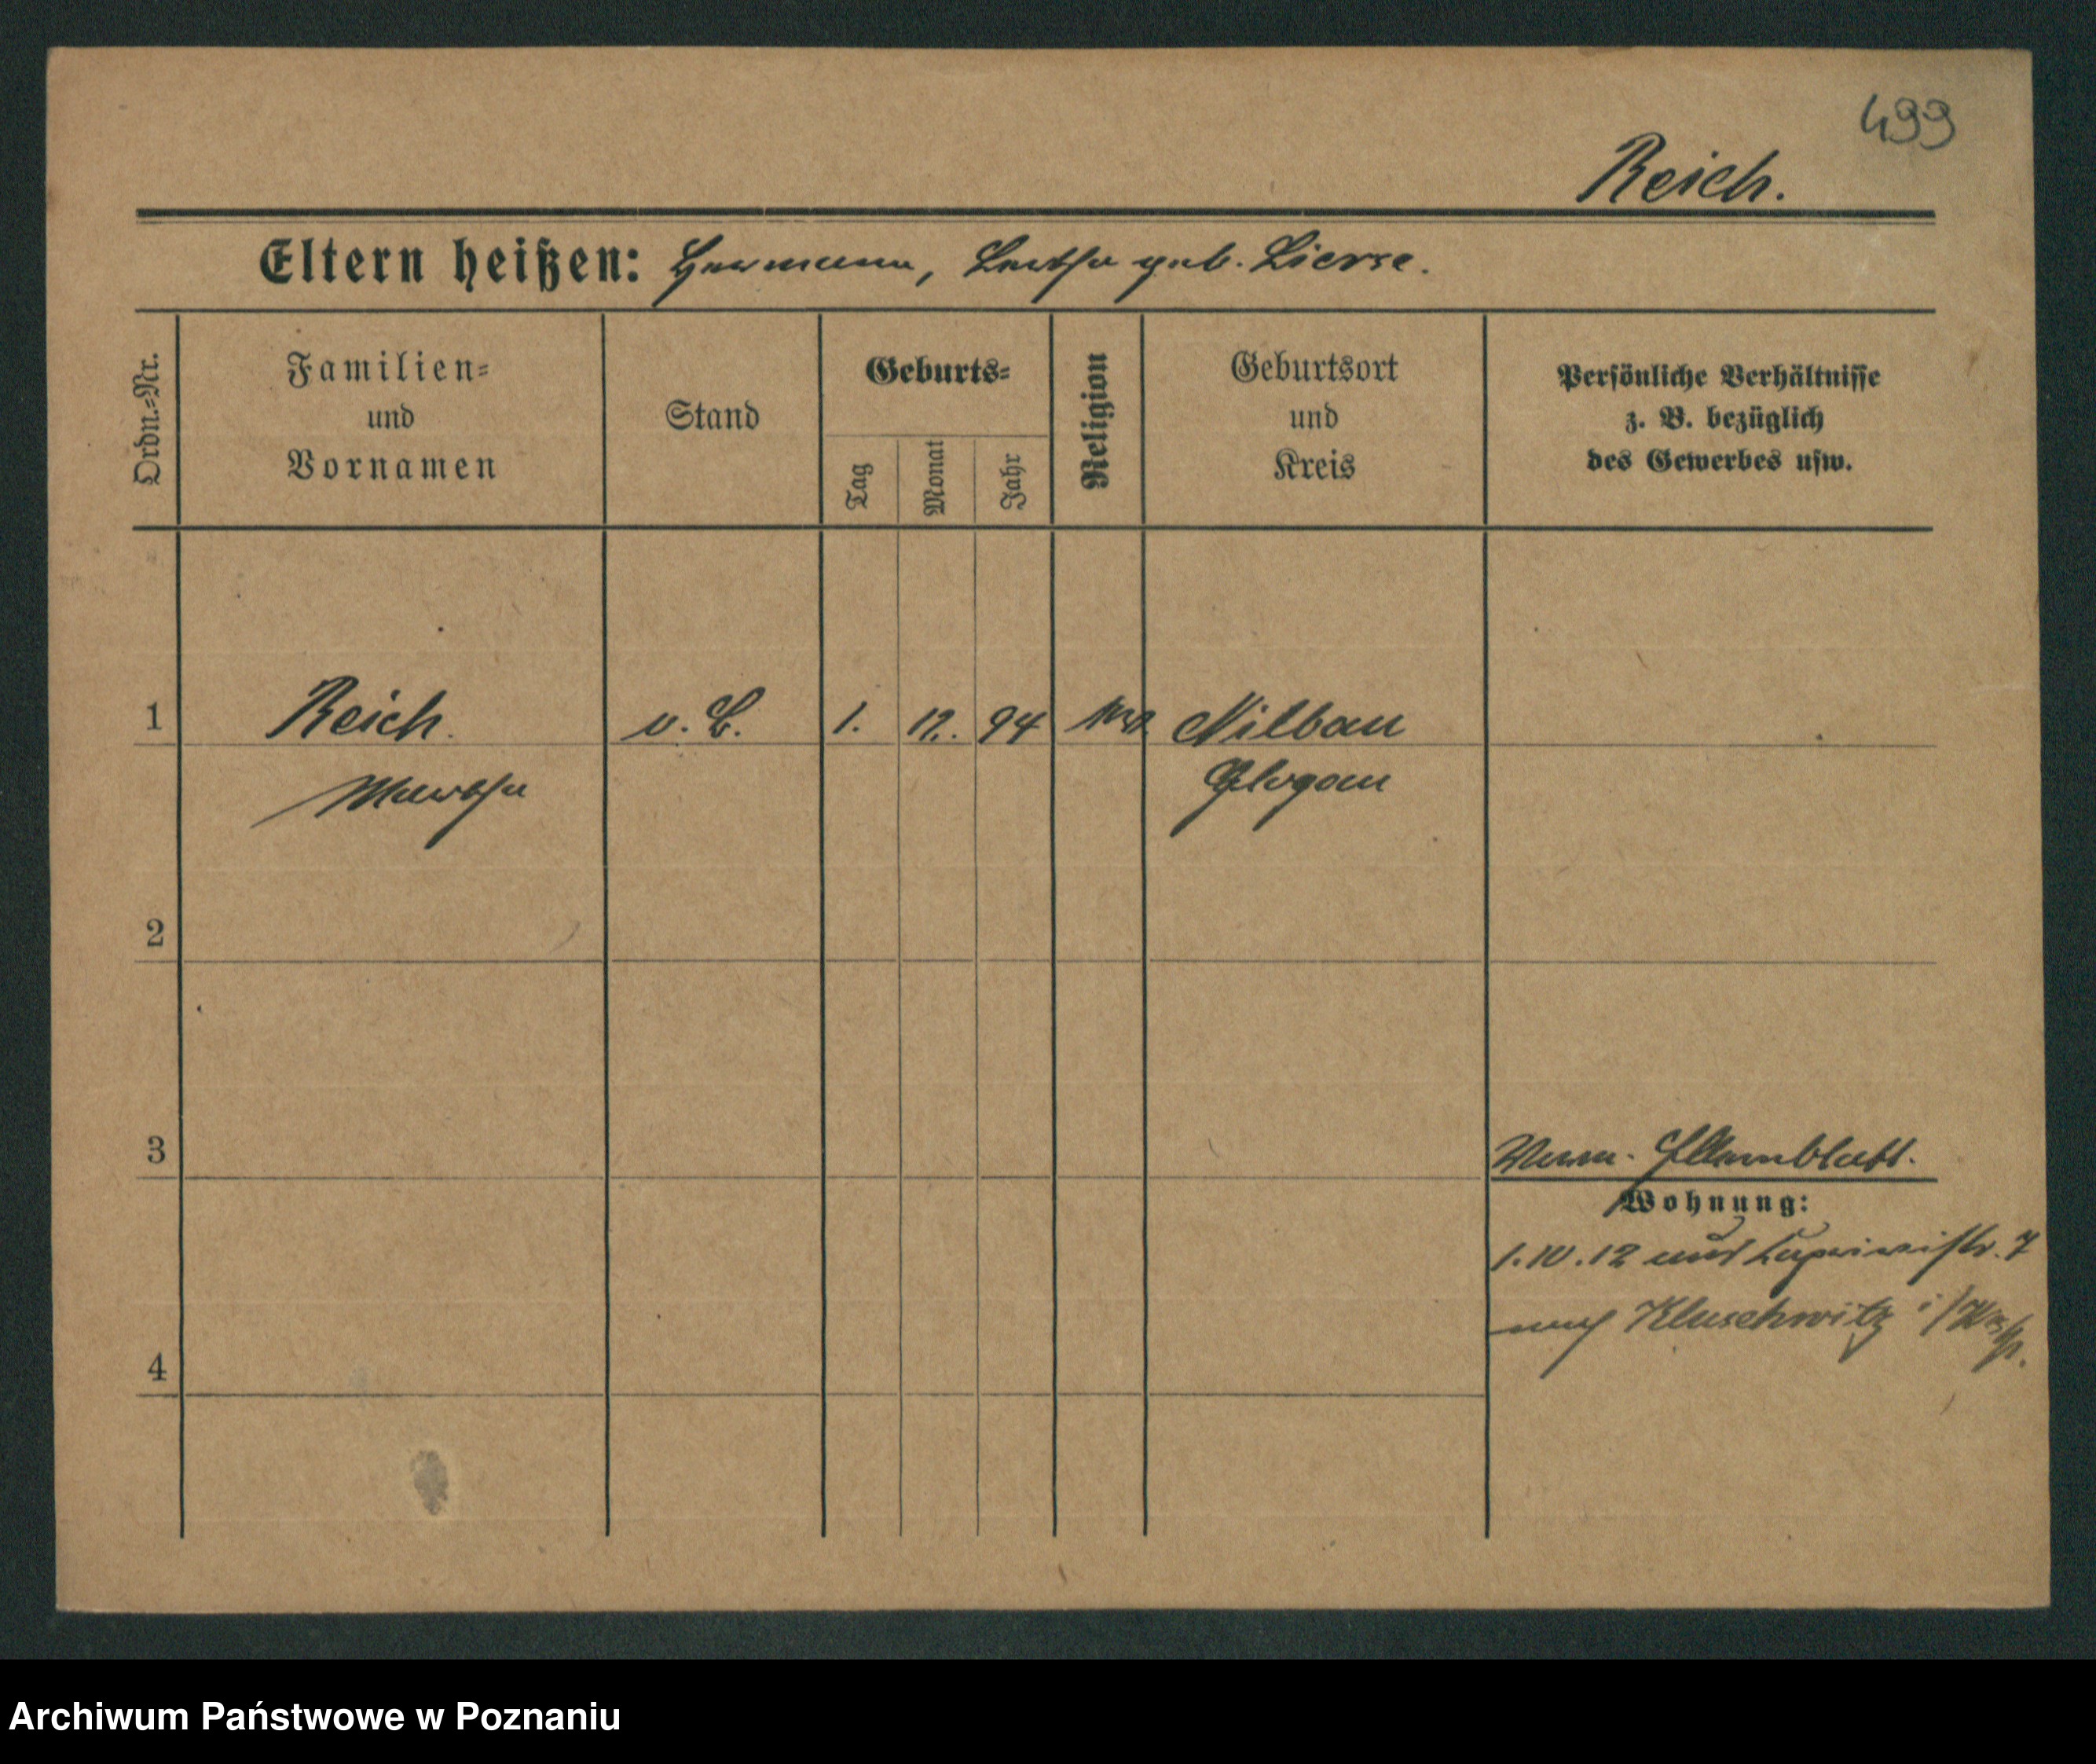 499
Reich.
Eltern heißen: Hermann, Bertha geb. Lierse.
Ordn.-Nr.
Familien=
und
Vornamen
Stand
Geburts=
Tag
Monat
Jahr
Religion
Geburtsort
und
Kreis
Persönliche Verhältnisse
z. B. bezüglich
des Gewerbes usw.
1 Reich. 1. 12. 94 Nilbau
Martha Glogau
2
3
Wohnung:
1.10.12 str. 7
4 nach Kluschwitz
Archiwum Państwowe w Poznaniu